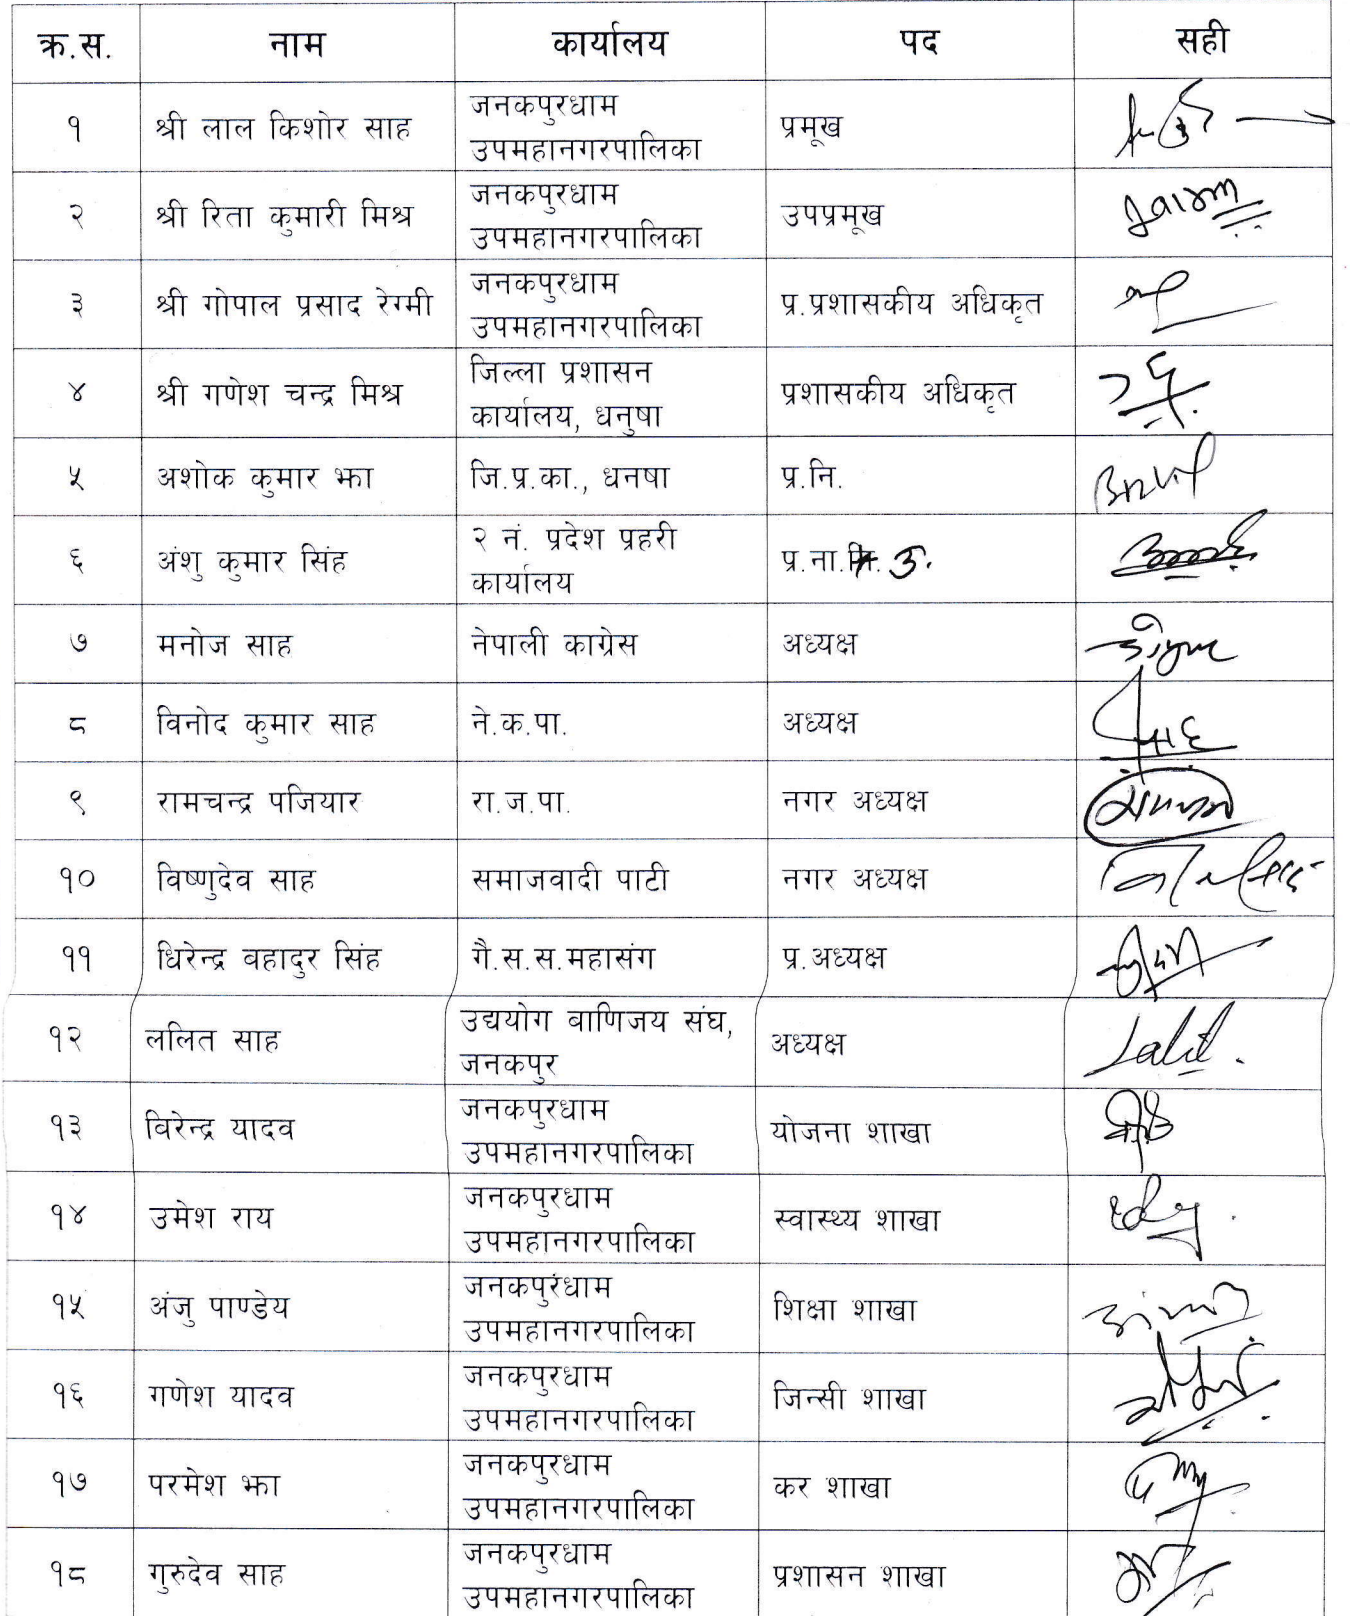 क्र.स. नाम कार्यालय पद सही
१ श्री लाल किशोर साह जनकपुरधाम उपमहानगरपालिका प्रमूख
२ श्री रिता कुमारी मिश्र जनकपुरधाम उपमहानगरपालिका उपप्रमूख
३ श्री गोपाल प्रसाद रेग्मी जनकपुरधाम उपमहानगरपालिका प्र.प्रशासकीय अधिकृत
४ श्री गणेश चन्द्र मिश्र जिल्ला प्रशासन कार्यालय, धनुषा प्रशासकीय अधिकृत
५ अशोक कुमार झा जि.प्र.का., धनषा प्र.नि.
६ अंशु कुमार सिंह २ नं. प्रदेश प्रहरी कार्यालय प्र.ना.उ.
७ मनोज साह नेपाली काग्रेस अध्यक्ष
८ विनोद कुमार साह ने.क.पा. अध्यक्ष
९ रामचन्द्र पजियार रा.ज.पा. नगर अध्यक्ष
१० विष्णुदेव साह समाजवादी पाटी नगर अध्यक्ष
११ धिरेन्द्र वहादुर सिंह गै.स.स.महासंग प्र.अध्यक्ष
१२ ललित साह उद्ययोग बाणिजय संघ, जनकपुर अध्यक्ष Lalit.
१३ बिरेन्द्र यादव जनकपुरधाम उपमहानगरपालिका योजना शाखा
१४ उमेश राय जनकपुरधाम उपमहानगरपालिका स्वास्थ्य शाखा
१५ अंजु पाण्डेय जनकपुरधाम उपमहानगरपालिका शिक्षा शाखा
१६ गणेश यादव जनकपुरधाम उपमहानगरपालिका जिन्सी शाखा
१७ परमेश झा जनकपुरधाम उपमहानगरपालिका कर शाखा
१८ गुरुदेव साह जनकपुरधाम उपमहानगरपालिका प्रशासन शाखा